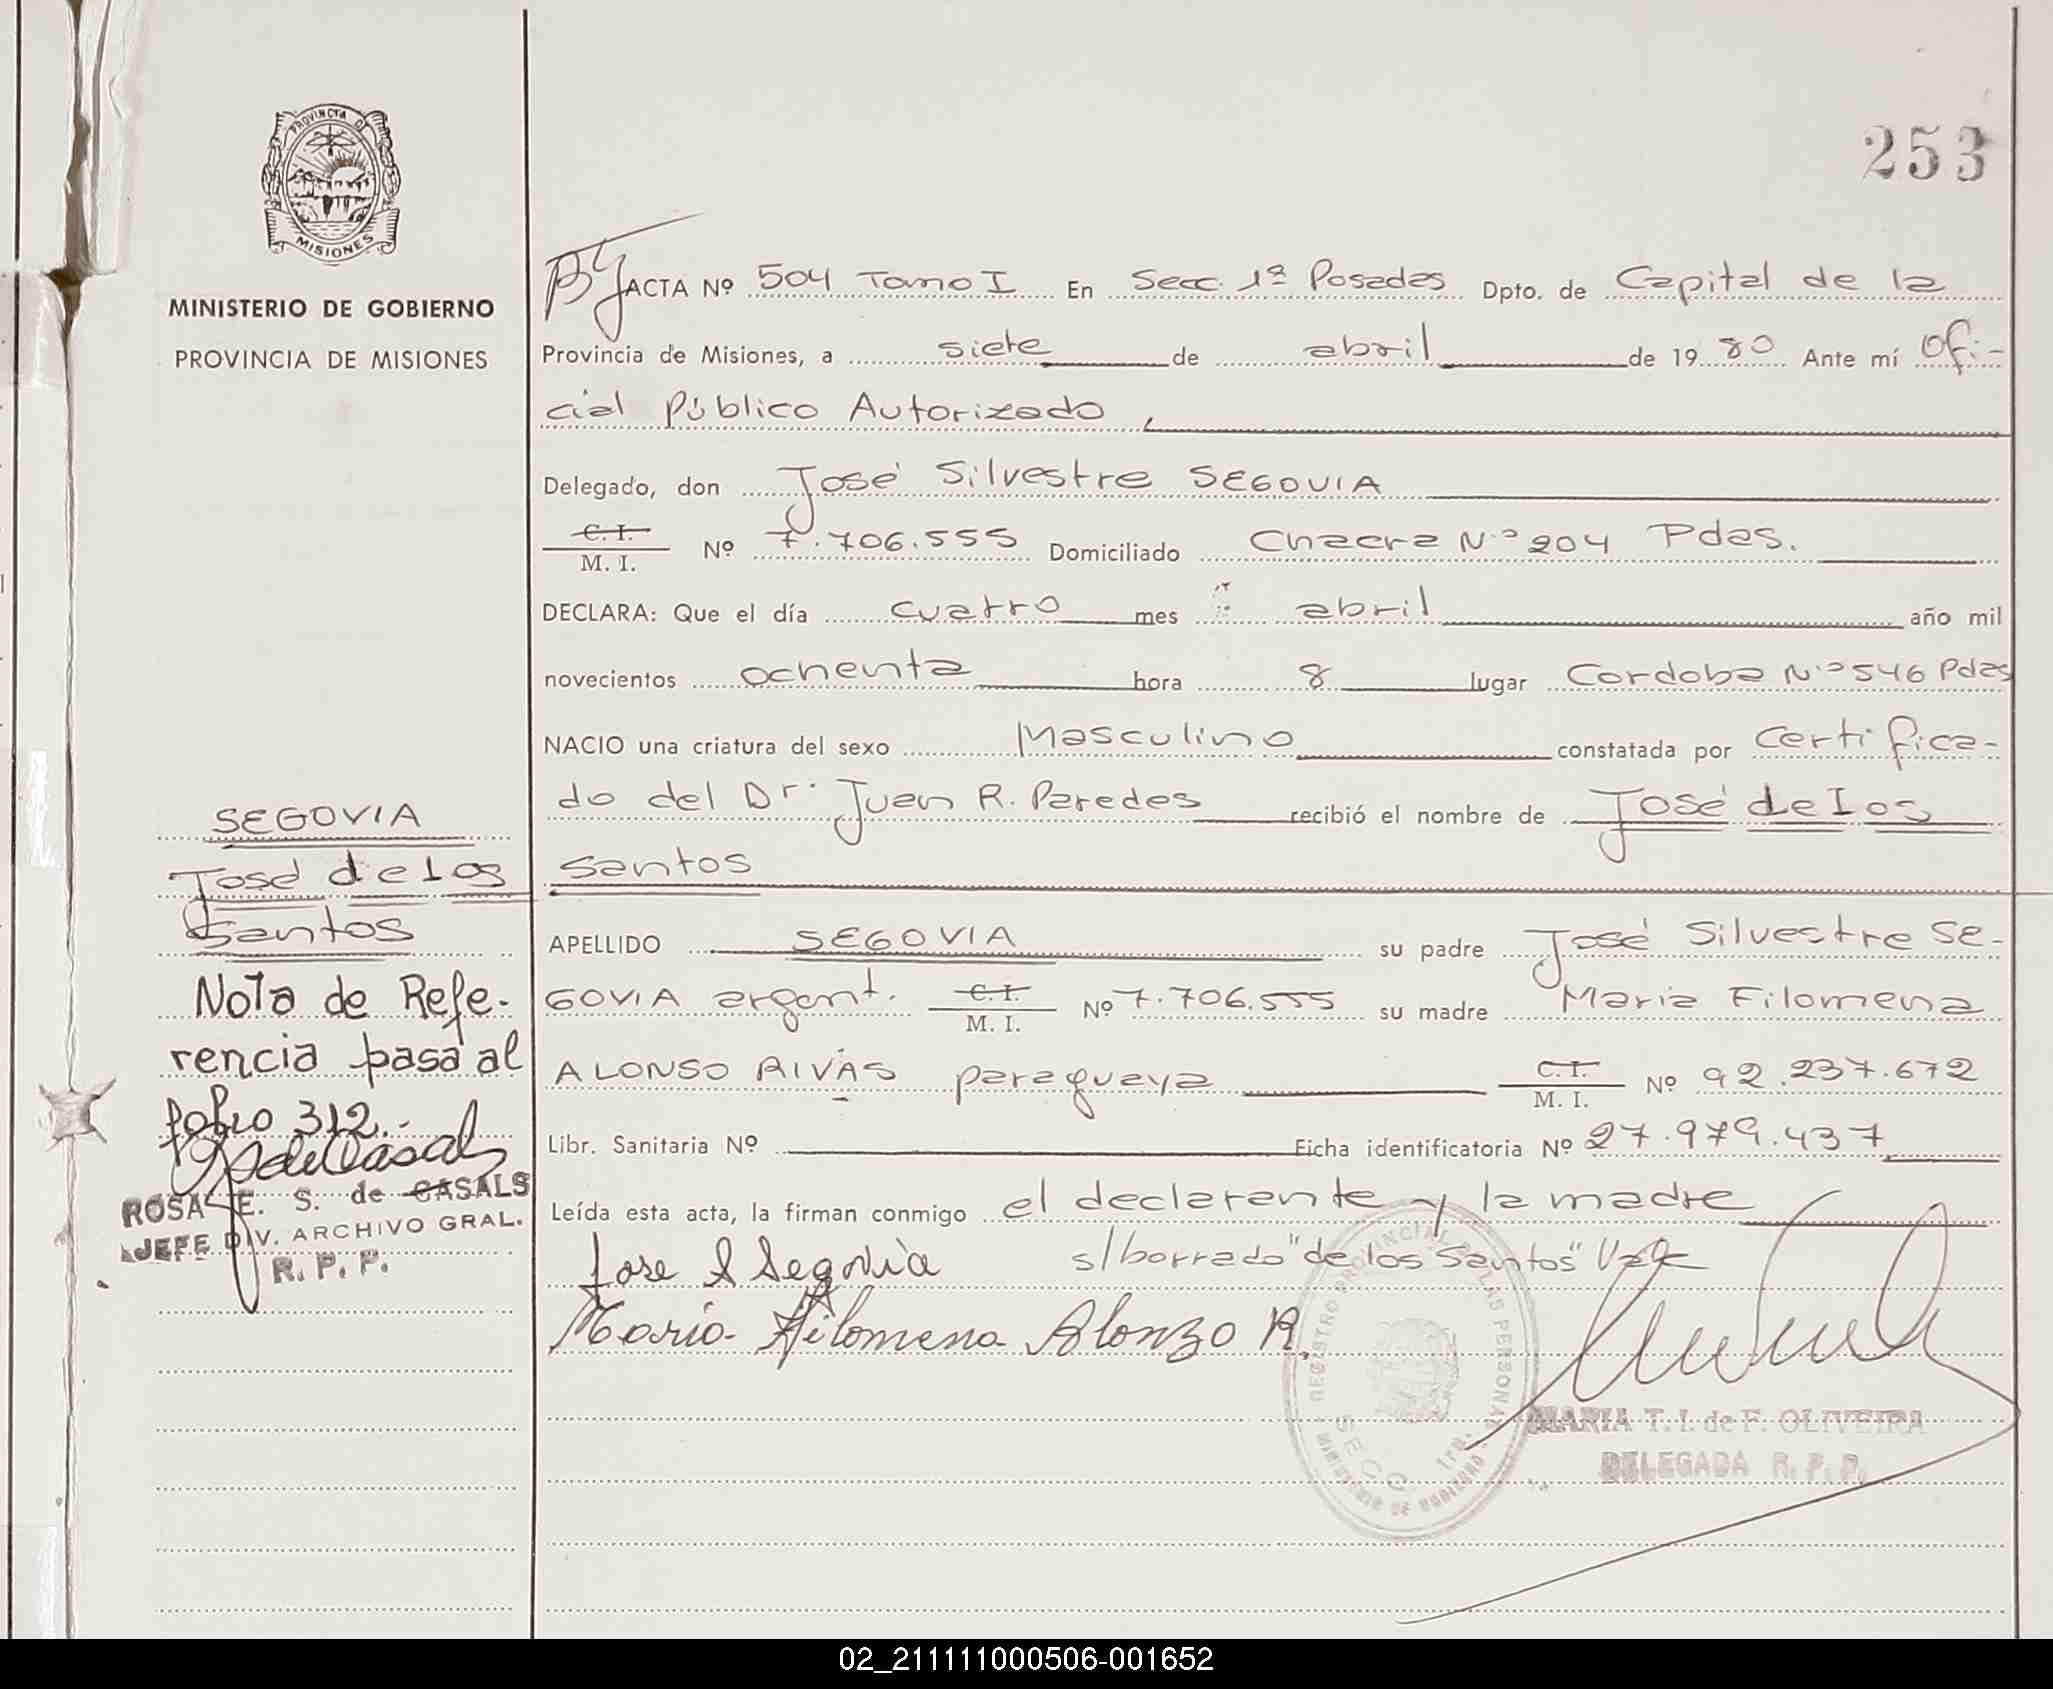 PROVINCIA D
MISIONES
MINISTERIO DE GOBIERNO
PROVINCIA DE MISIONES
253
ACTA Nº 504 Tomo I En Secc. 1ª Posadas Dpto. de Capital de la
Provincia de Misiones, a siete de abril de 1980 Ante mí Ofi-
cial Público Autorizado,
Delegado, don José Silvestre SEGOVIA
C. I.
M. I. Nº 7.706.555 Domiciliado Chacra Nº 204 Pdas.
DECLARA: Que el día cuatro mes abril año mil
novecientos ochenta hora 8 lugar Cordoba Nº 546 Pdas
NACIO una criatura del sexo Masculino constatada por Certifica-
do del Dr. Juan R. Paredes recibió el nombre de José de los
Santos
APELLIDO SEGOVIA su padre José Silvestre SE-
GOVIA argent. C. I. M. I. Nº 7.706.555 su madre Maria Filomena
ALONSO RIVAS paraguaya C. I. M. I. Nº 92.237.672
Libr. Sanitaria Nº Ficha identificatoria Nº 27.979.437
Leída esta acta, la firman conmigo el declarante y la madre
s/borrado "de los Santos" Vale
Jose S Segovia
Maria Filomena Alonzo R.
REGISTRO PROVINCIAL DE LAS PERSONAS
MINISTERIO DE GOBIERNO
SECC 1ra.
MARIA T. I. de F. OLIVEIRA
DELEGADA R. P. P.
SEGOVIA
José de los
Santos
Nota de Refe-
rencia pasa al
folio 312.-
ROSA E. S. de CASALS
JEFE DIV. ARCHIVO GRAL.
R. P. P.
02_211111000506-001652